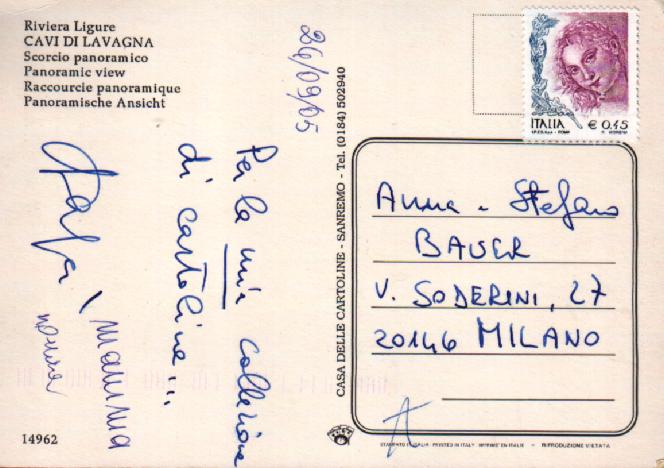 Riviera Ligure
CAVI DI LAVAGNA
Scorcio panoramico
Panoramic view
Raccourcie panoramique
Panoramische Ansicht
26/09/05
Per la mia collezione
di cartoline...
Papà
mamma
ITALIA € 0,45
CASA DELLE CARTOLINE - SANREMO - Tel. (0184) 502940
Anna e Stefano
BAUER
V. SODERINI, 27
20146 MILANO
14962
STAMPATO IN ITALIA - PRINTED IN ITALY - IMPRIMÉ EN ITALIE - RIPRODUZIONE VIETATA